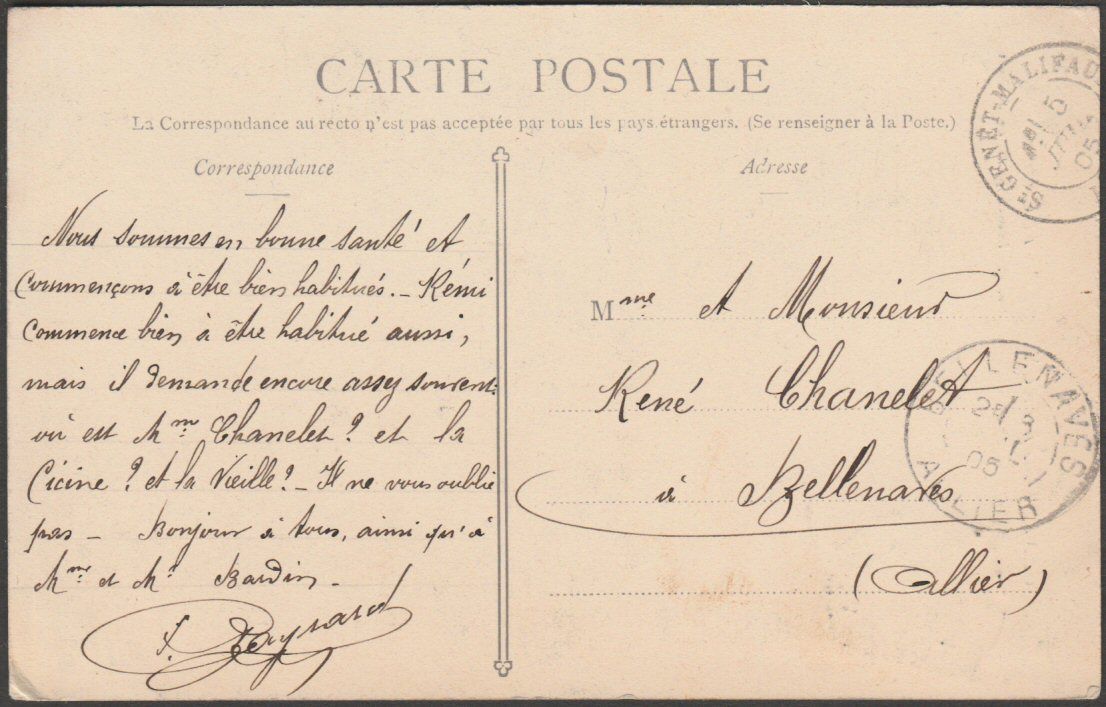 CARTE POSTALE
La Correspondance au recto n'est pas acceptée par tous les pays étrangers. (Se renseigner à la Poste.)
Correspondance
Nous sommes en bonne santé et
commençons à être bien habitués. – Rémi
commence bien à être habitué aussi,
mais il demande encore assez souvent:
où est Mme Chanelet? et la
Cicine? et la Vieille? – Il ne vous oublie
pas – Bonjour à tous, ainsi qu'à
Mme et Mr Bardin –
Adresse
Mme et Monsieur
René Chanelet
à Bellenaves
(Allier)
ST GENET-MALIFAU
5
05
BELLENAVES
2E
05
ALLIER